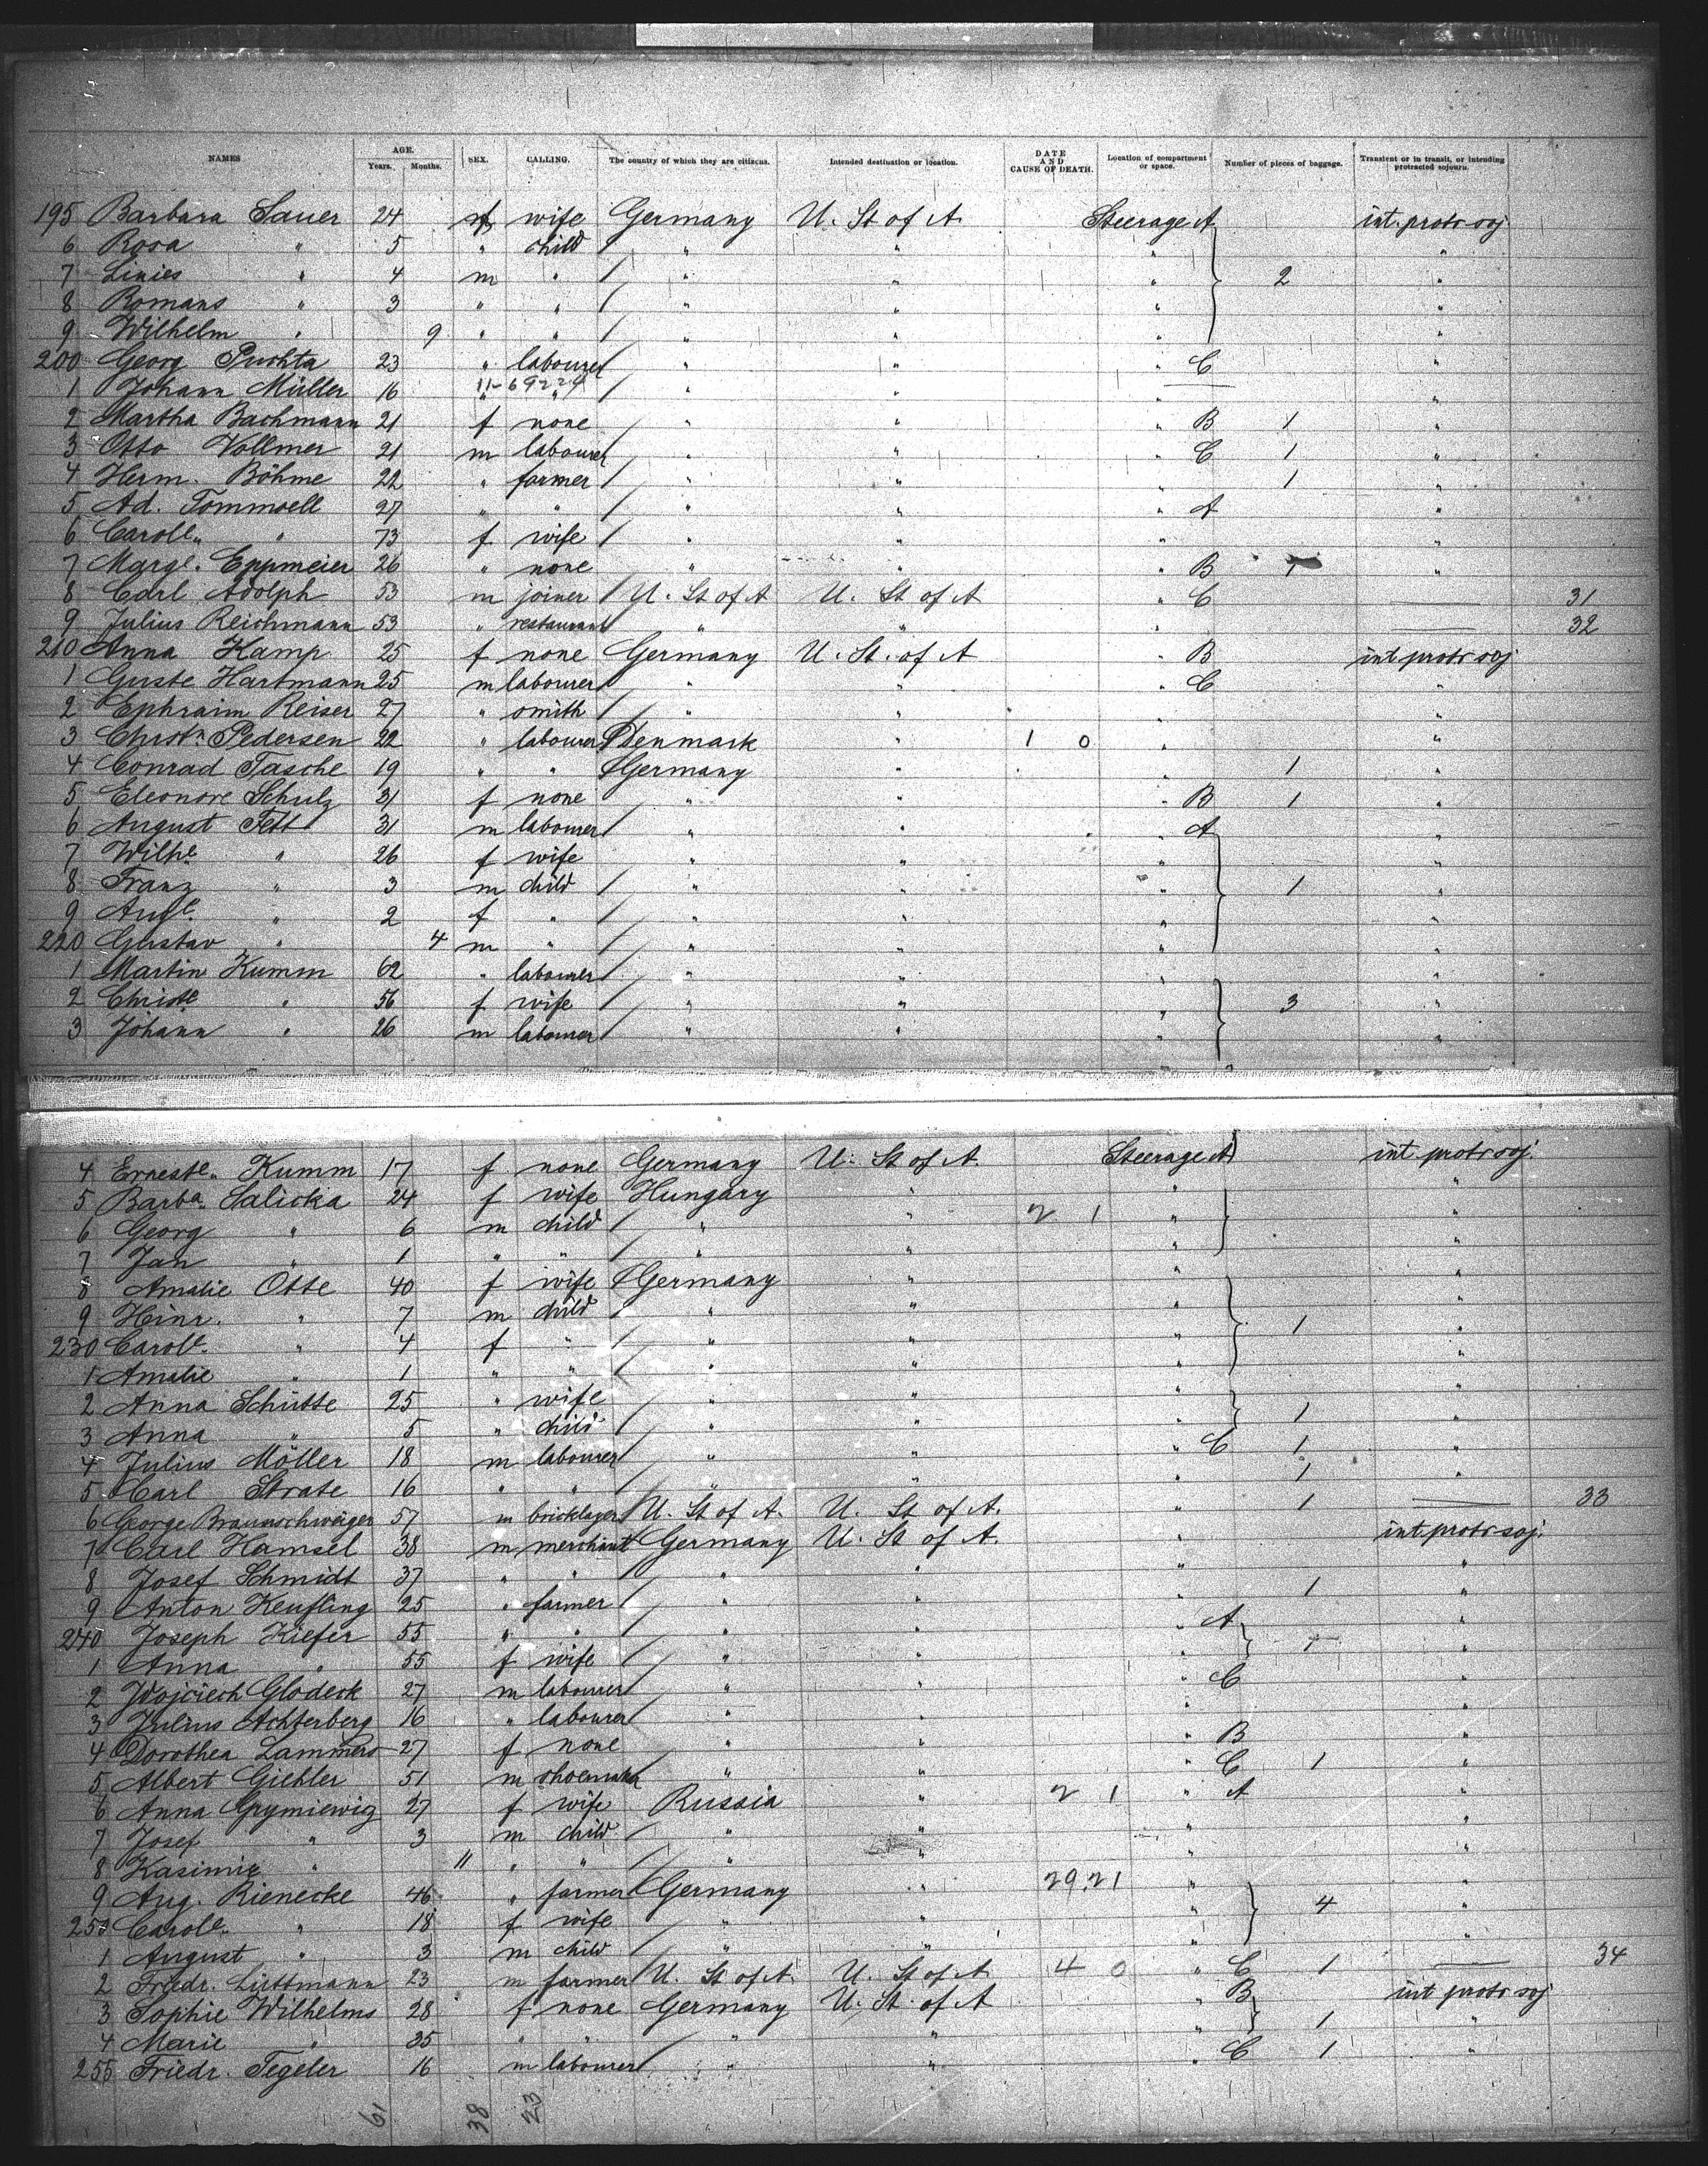 NAMES AGE. Years. Months. SEX. CALLING. The country of which they are citizens. Intended destination or location. DATE AND CAUSE OF DEATH. Location of compartment or space. Number of pieces of baggage. Transient or in transit, or intending protracted sojourn.
195 Barbara Sauer 24 f wife Germany U. St of A Steerage A int. protr soj
6 Rosa " 5 " child " " " "
7 " 4 m " " " " 2 "
8 Romans " 3 " " " " " "
9 Wilhelm " 9 " " " " " "
200 Georg Puchta 23 " labourer " " C "
1 Johann Müller 16 " 11-69224 " " " " "
2 Martha Bachmann 21 f none " " " B 1 "
3 Otto Vollmer 21 m labourer " " " C 1 "
4 Herm. Böhme 22 " farmer " " " 1 "
5 Ad. Tommoell 27 " " " " " A "
6 Caroll. " 73 f wife " " " "
7 Margt. Eppmeier 26 " none " " " B 1 "
8 Carl Adolph 53 m joiner U. St of A U. St of A " C 31
9 Julius Reichmann 53 " restaurant " " " 32
210 Anna Kamp 25 f none Germany U. St. of A " B int protr soj
1 Guste Hartmann 25 m labourer " " " C "
2 Ephraim Reiser 27 " smith " " " "
3 Christn. Pedersen 22 " labourer Denmark " 1 0 " "
4 Conrad Tasche 19 " " Germany " " 1 "
5 Eleonore Schulz 31 f none " " " B 1 "
6 August Fett 31 m labourer " " " A "
7 Wilhe " 26 f wife " " " "
8 Franz " 3 m child " " " 1 "
9 Auge. " 2 f " " " " "
220 Gustav " 4 m " " " " "
1 Martin Kumm 62 " labourer " " "
2 Christe " 56 f wife " " " 3 "
3 Johann " 26 m labourer " " " "
4 Erneste. Kumm 17 f none Germany U. St of A. Steerage A int. protr soj.
5 Barba. Salicka 24 f wife Hungary " " "
6 Georg " 6 m child " " 2 1 " "
7 Jan " 1 " " " " " "
8 Amalie Otte 40 f wife Germany " " "
9 Hinr. " 7 m child " " " 1 "
230 Carole. " 4 f " " " " "
1 Amalie " 1 " " " " " "
2 Anna Schütte 25 " wife " " " "
3 Anna " 5 " child " " " 1 "
4 Julius Möller 18 m labourer " " " C 1 "
5 Carl Strate 16 " " " " " 1 "
6 George Braunschweiger 57 m bricklayer U. St of A. U. St of A. " 1 33
7 Carl Hamsel 38 m merchant Germany U. St of A. " int. protr soj.
8 Josef Schmidt 37 " " " " " "
9 Anton Keufling 25 " farmer " " " 1 "
240 Joseph Kiefer 55 " " " " " A "
1 Anna " 55 f wife " " 1 "
2 Wojciech Glodeck 27 m labourer " " " C "
3 Julius Achterberg 16 " labourer " " " "
4 Dorothea Lammers 27 f none " " " B "
5 Albert Giehler 51 m shoemaker " " " C 1 "
6 Anna Grymiewicz 27 f wife Russia " 2 1 " A "
7 Josef " 3 m child " " " "
8 Kasimir " 11 " " " " "
9 Aug. Rienecke 46 " farmer Germany " 29.21 " "
250 Carole. " 18 f wife " " " 4 "
1 August " 3 m child " " "
2 Friedr. Lüttmann 23 m farmer U. St of A. U. St of A 4 0 " C 1 34
3 Sophie Wilhelms 28 f none Germany U. St. of A " B int protr soj
4 Marie " 35 " " " " " 1 "
255 Friedr. Tegeler 16 m labourer " " " C 1 "
61 38 23